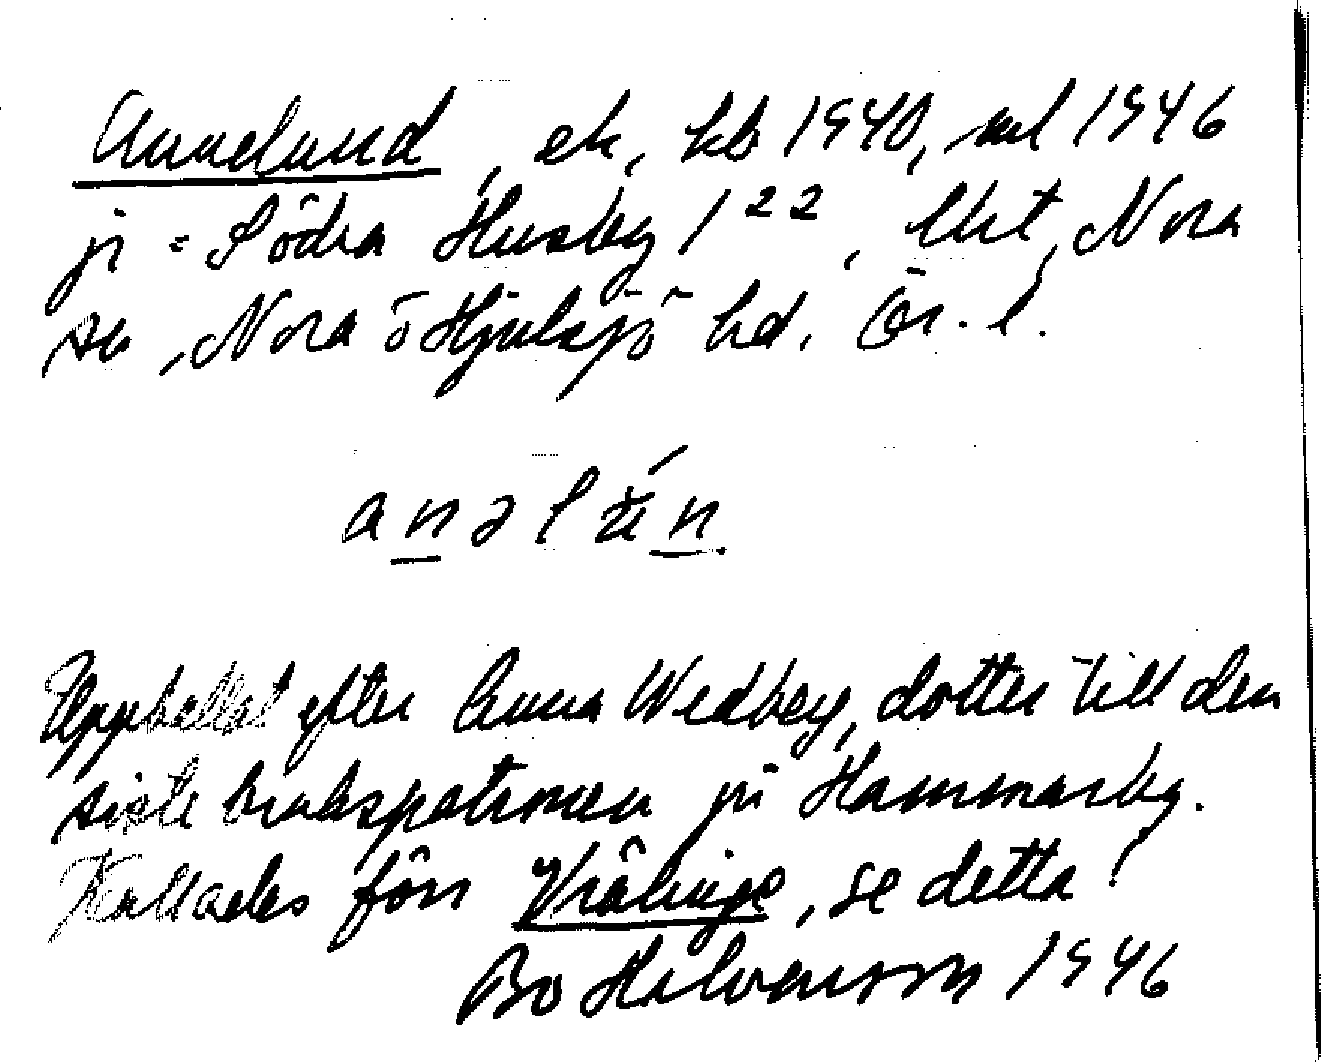 Annelund, ek, kb 1940, ml 1946
på = Södra Husby 1 22, Nora
sn, Nora ö Hjulsjö hd. Ör. l.
anəlún.
Uppkallat efter Anna Wedberg, dotter till den
siste brukspatronen på Hammarby.
Kallades förr Vrålinge, se detta!
Bo Halvarsson 1946